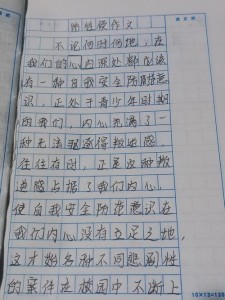 防性侵作文
不论何时何地，在
我们的心内深处都应该
有一种自我安全防范意
识。正处于青少年时期
的我们，内心充满了一
种无法驱逐得叛逆感。
往往有时，正是这种叛
逆感占据了我们内心，
使自我安全防范意识在
我们内心没有立足之地，
这才致各种不同悲剧性
的案件在校园中不断上